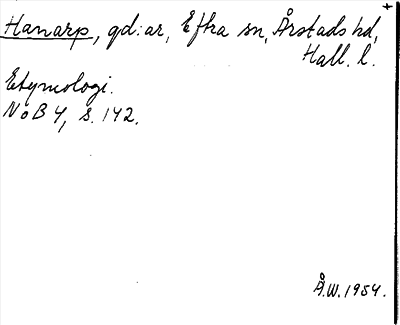 Hanarp, gd:ar, Eftra sn, Årstads hd,
Hall. l.
Etymologi.
NoB 4, s. 142.
Å.W. 1954.